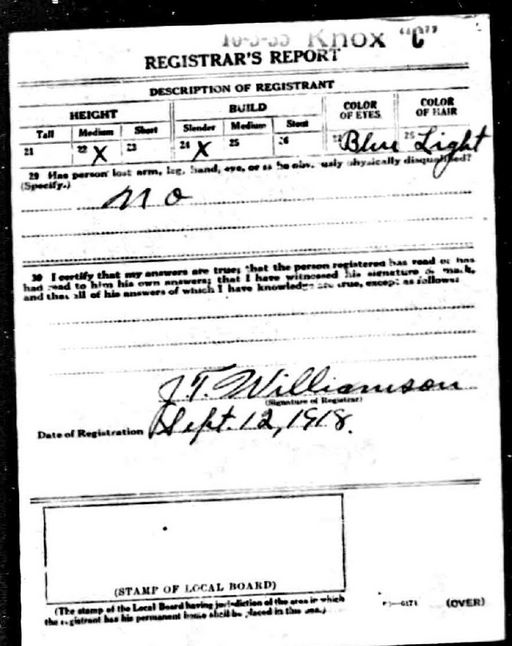 Knox "C"
REGISTRAR'S REPORT
DESCRIPTION OF REGISTRANT
HEIGHT BUILD COLOR OF EYES COLOR OF HAIR
Tall Medium Short Slender Medium Stout
21 22 X 23 24 X 25 26 27 Blue 28 Light
29 Has person lost arm, leg, hand, eye, or is he obviously physically disqualified?
(Specify.)
no
30 I certify that my answers are true; that the person registered has read or has
had read to him his own answers; that I have witnessed his signature or mark,
and that all of his answers of which I have knowledge are true, except as follows:
J. T. Williamson
(Signature of Registrar)
Date of Registration Sept. 12, 1918.
(STAMP OF LOCAL BOARD)
(The stamp of the Local Board having jurisdiction of the area in which
the registrant has his permanent home shall be placed in this box.)
(OVER)